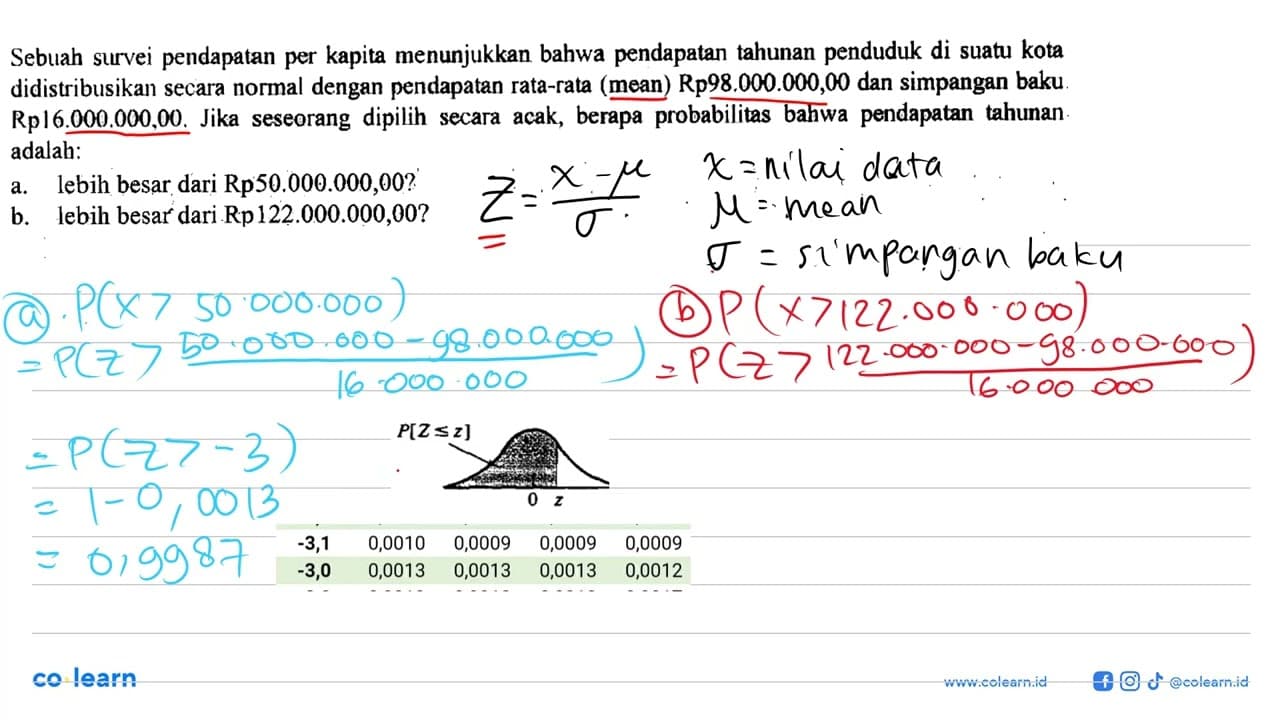 Sebuah survei pendapatan per kapita menunjukkan bahwa pendapatan tahunan penduduk di suatu kota
didistribusikan secara normal dengan pendapatan rata-rata (mean) Rp98.000.000,00 dan simpangan baku
Rp16.000.000,00. Jika seseorang dipilih secara acak, berapa probabilitas bahwa pendapatan tahunan
adalah:
a. lebih besar dari Rp50.000.000,00?
b. lebih besar dari Rp122.000.000,00?
Z = (x - μ) / σ
x = nilai data
μ = mean
σ = simpangan baku
(a). P(X > 50.000.000)
= P(Z > (50.000.000 - 98.000.000) / 16.000.000)
= P(Z > -3)
= 1 - 0,0013
= 0,9987
(b) P(X > 122.000.000)
= P(Z > (122.000.000 - 98.000.000) / 16.000.000)
P[Z ≤ z]
0 z
-3,1 0,0010 0,0009 0,0009 0,0009
-3,0 0,0013 0,0013 0,0013 0,0012
co learn
www.colearn.id
@colearn.id